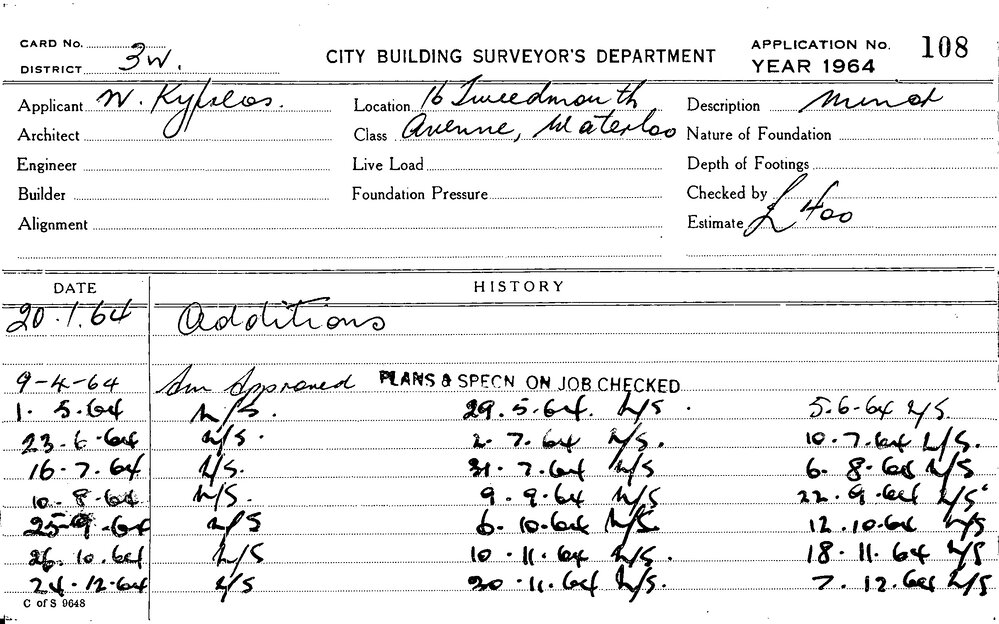 CARD No. APPLICATION No. 108
CITY BUILDING SURVEYOR'S DEPARTMENT
DISTRICT 3W. YEAR 1964
Applicant Location 16 Tweedmouth Description Minor
Architect Class Avenue, Waterloo Nature of Foundation
Engineer Live Load Depth of Footings
Builder Foundation Pressure Checked by
Alignment Estimate £400
DATE HISTORY
20.1.64 Additions
9-4-64 Approved PLANS & SPECN ON JOB CHECKED
1.5.64 N/S. 29.5.64. N/S. 5.6.64 N/S.
23.6.64 N/S. 2.7.64 N/S. 10.7.64 N/S.
16.7.64 N/S. 31.7.64 N/S 6.8.64 N/S
10.8.64 N/S. 9.9.64 N/S 22.9.64 N/S
25.9.64 N/S 6.10.64 N/S. 12.10.64 N/S
26.10.64 N/S 10.11.64 N/S. 18.11.64 N/S
24.12.64 N/S 30.11.64 N/S. 7.12.64 N/S
C of S 9648